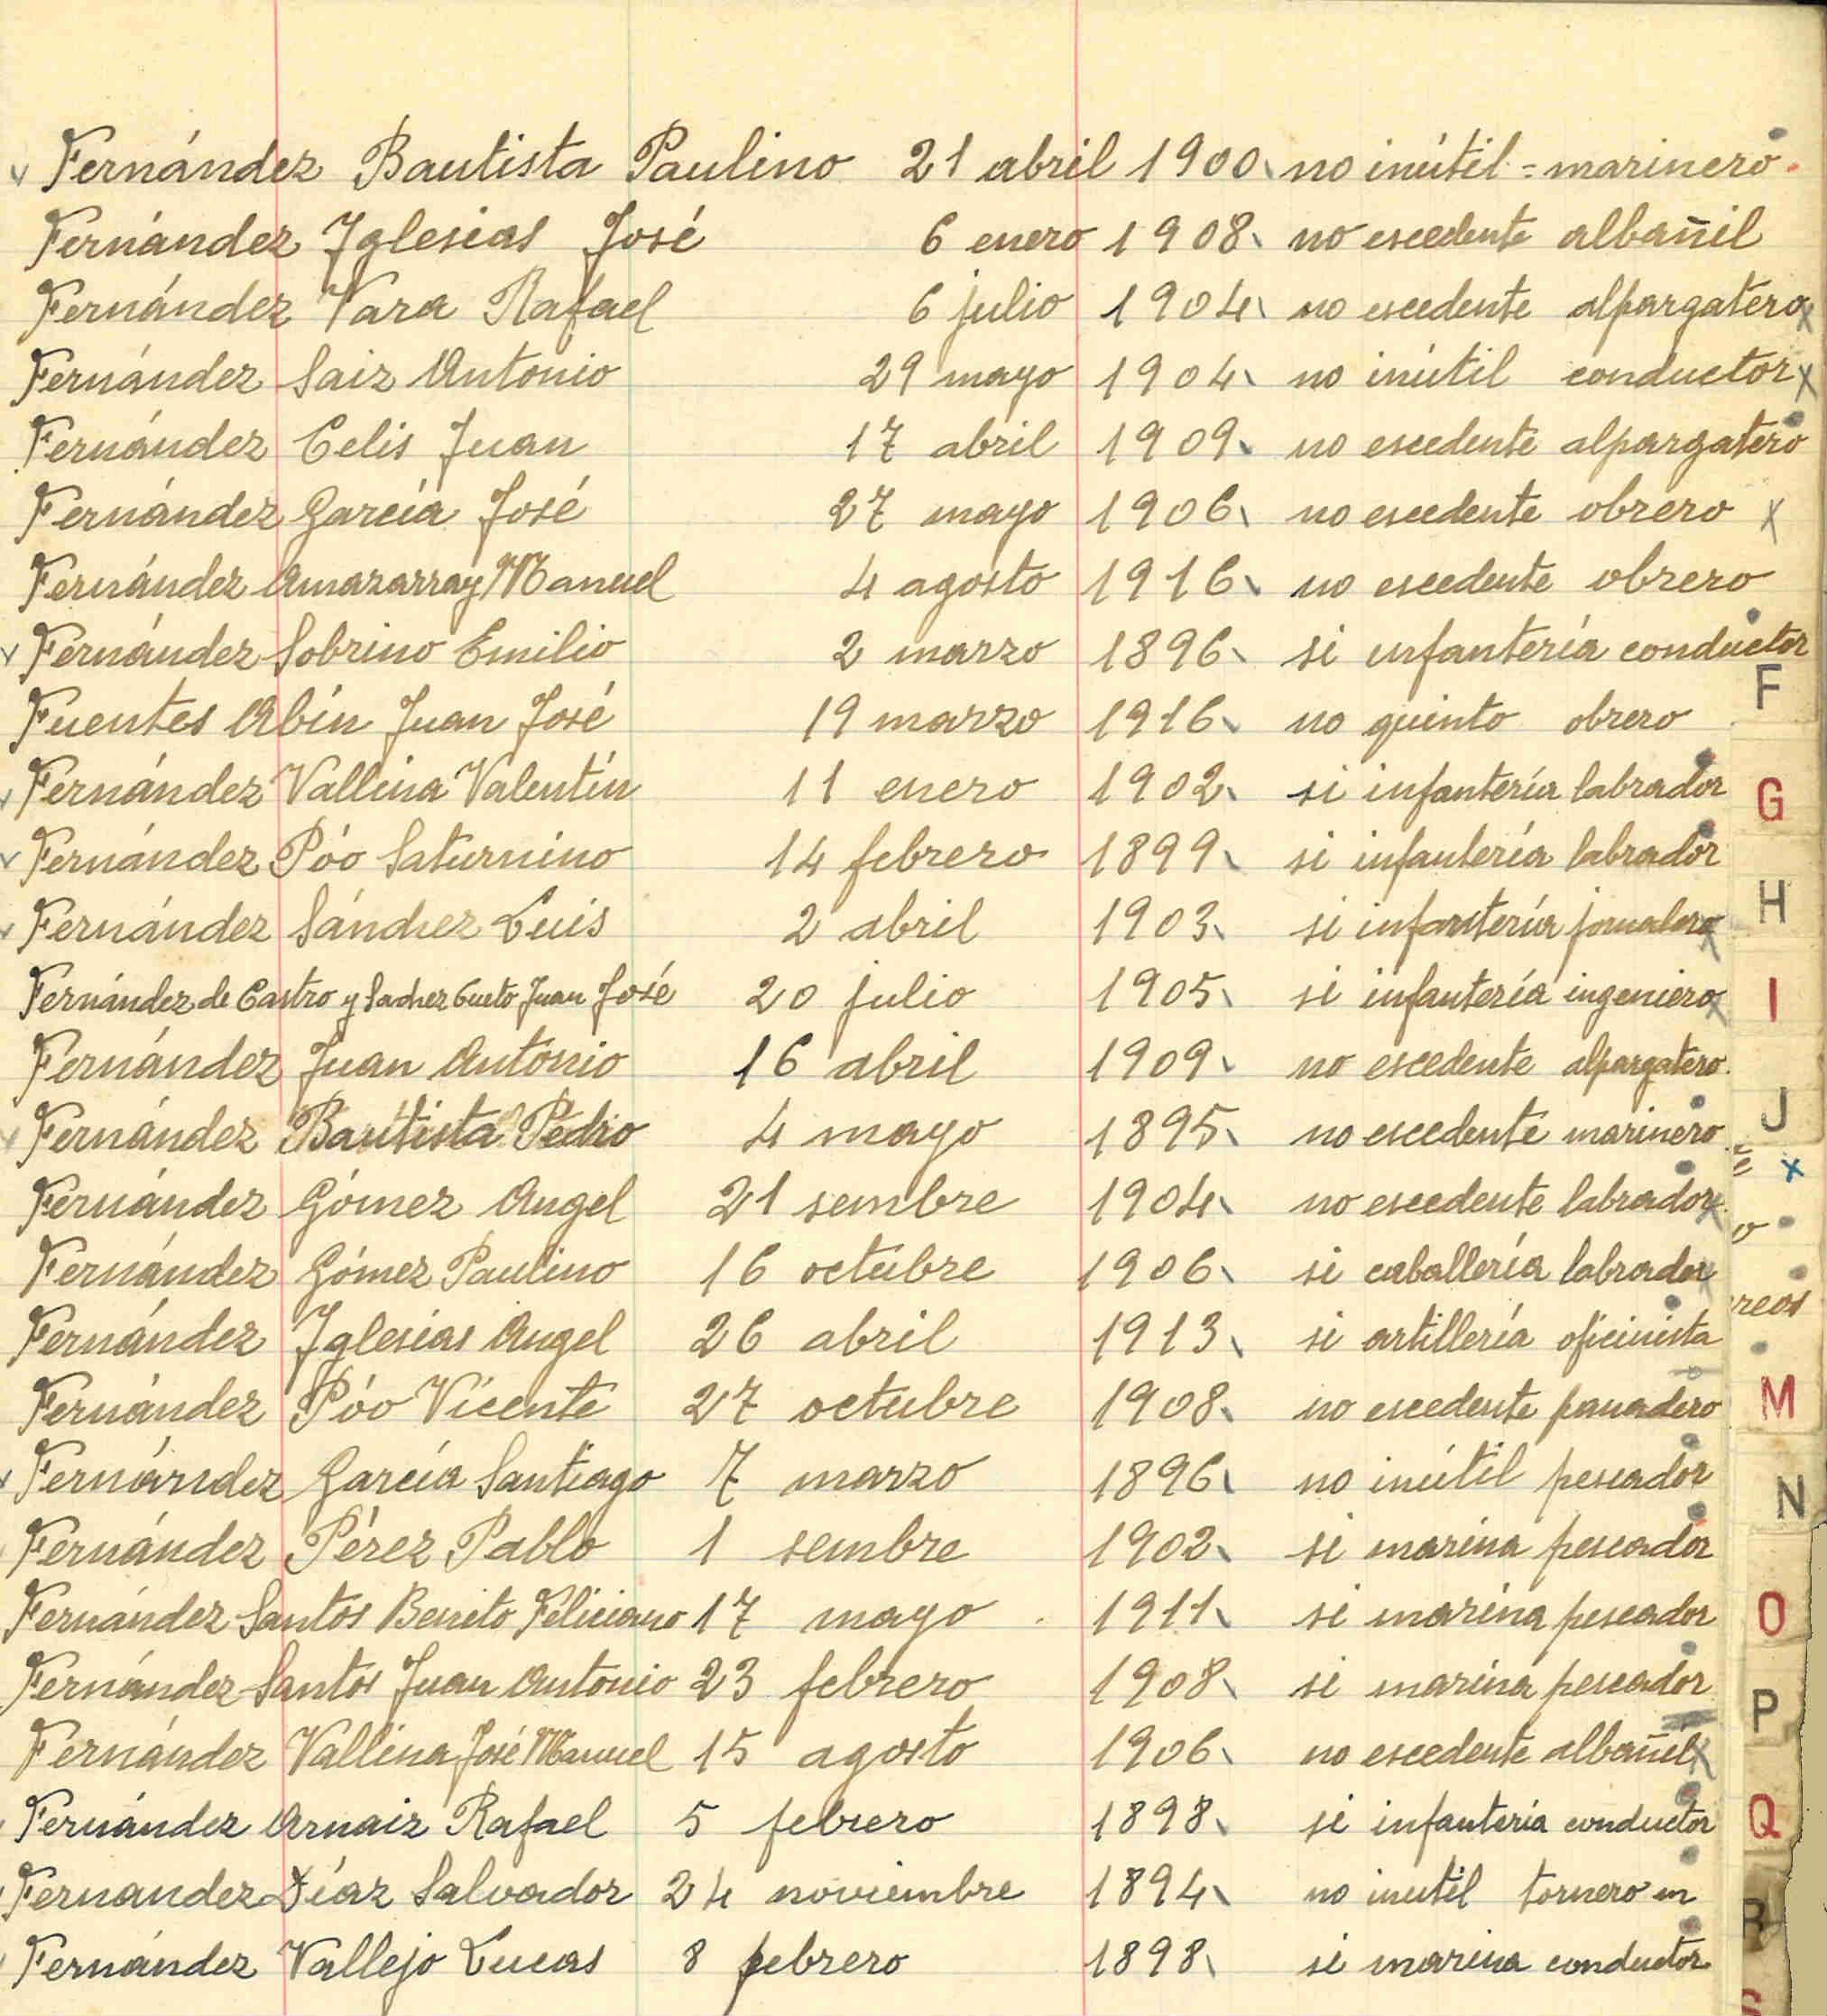 Fernández Bautista Paulino 21 abril 1900 no inútil = marinero.
Fernández Iglesias José 6 enero 1908 no escedente albañil
Fernández Vara Rafael 6 julio 1904 no escedente alpargatero x
Fernández Saiz Antonio 29 mayo 1904 no inútil conductor x
Fernández Celis Juan 17 abril 1909 no escedente alpargatero
Fernández García José 27 mayo 1906 no escedente obrero x
Fernández Amazarray Manuel 4 agosto 1916 no escedente obrero
Fernández Sobrino Emilio 2 marzo 1896 si infantería conductor
F
Fuentes Abín Juan José 19 marzo 1916 no quinto obrero
Fernández Vallina Valentín 11 enero 1902 si infantería labrador
G
Fernández Póo Saturnino 14 febrero 1899 si infantería labrador
H
Fernández Sánchez Luis 2 abril 1903 si infantería jornalero x
Fernández de Castro y Sachez Cueto Juan José 20 julio 1905 si infantería ingeniero x
I
Fernández Juan Antonio 16 abril 1909 no escedente alpargatero.
J
Fernández Bautista Pedro 4 mayo 1895 no escedente marinero
x
Fernández Gómez Angel 21 sembre 1904 no escedente labrador x
Fernández Gómez Paulino 16 octubre 1906 si caballería labrador x
reos
Fernández Iglesias Angel 26 abril 1913 si artillería oficinista
Fernández Póo Vicente 27 octubre 1908 no escedente panadero
M
Fernández García Santiago 7 marzo 1896 no inútil pescador
N
Fernández Pérez Pablo 1 sembre 1902 si marina pescador
Fernández Santos Benito Feliciano 17 mayo 1911 si marina pescador
O
Fernández Santos Juan Antonio 23 febrero 1908 si marina pescador
P
Fernández Vallina José Manuel 15 agosto 1906 no escedente albañil x
Fernández Arnaiz Rafael 5 febrero 1898 si infantería conductor
Q
Fernandez Díaz Salvador 24 noviembre 1894 no inutil tornero m
R
Fernández Vallejo Lucas 8 febrero 1898 si marina conductor
S